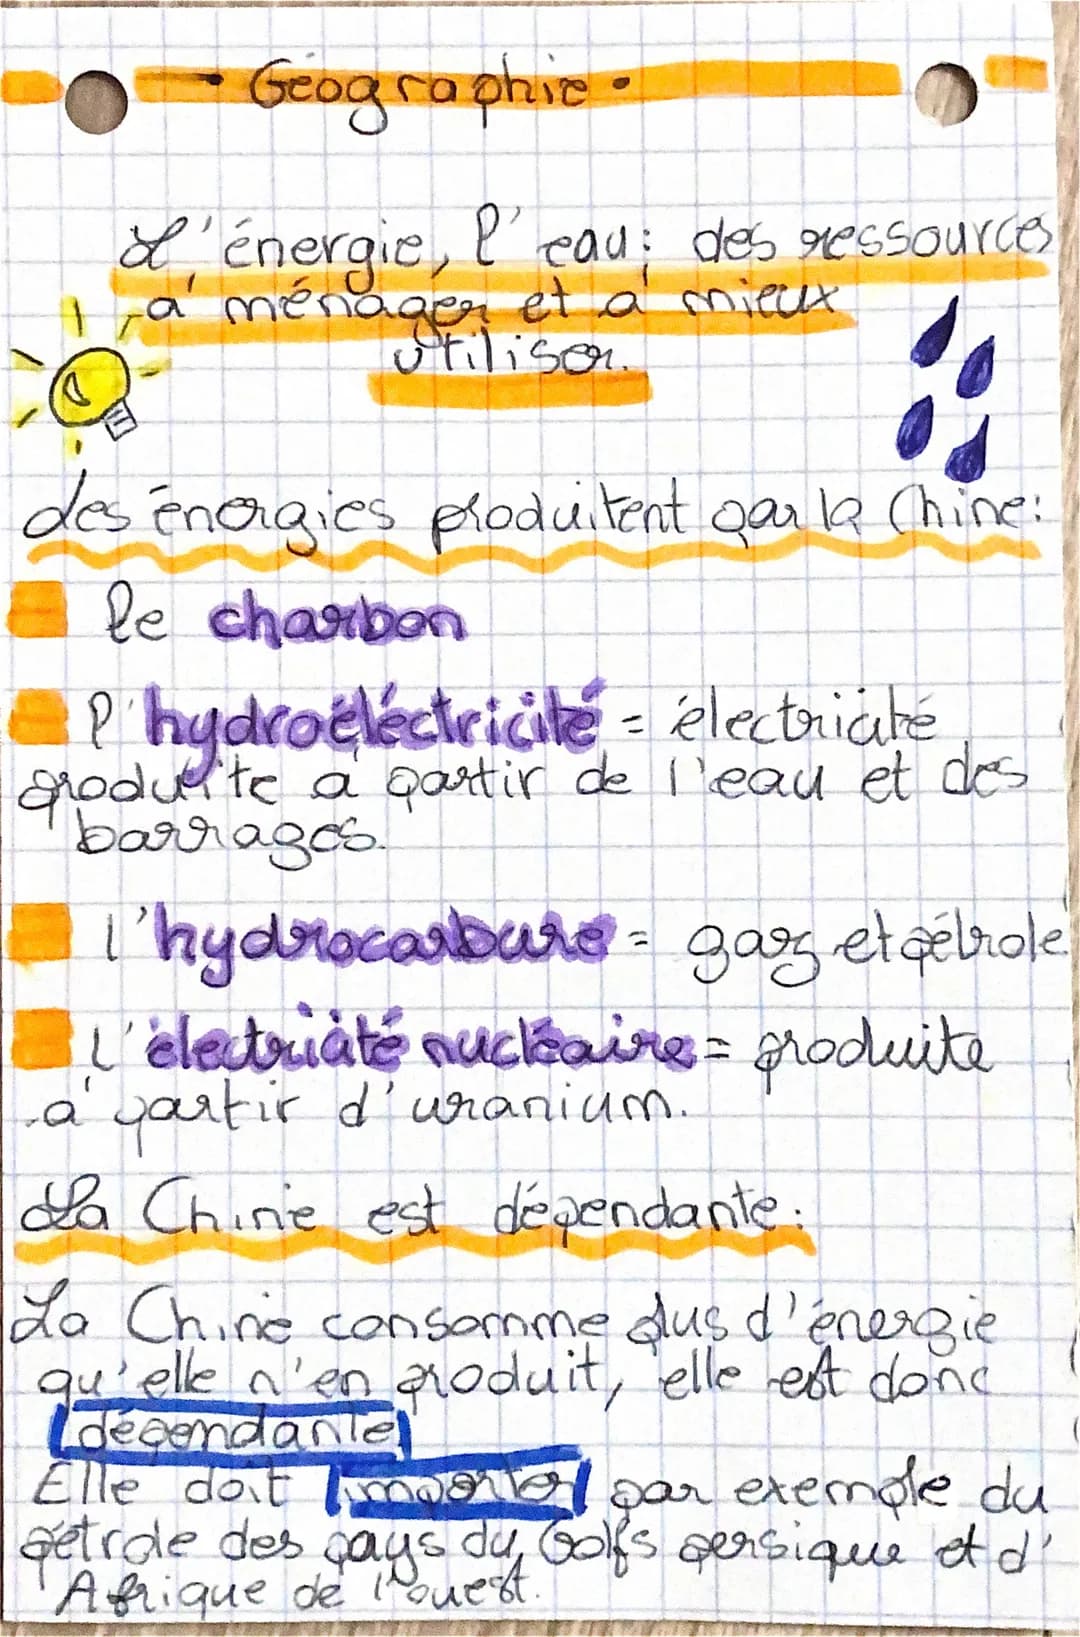 • Géographie •
L'énergie, l'eau: des ressources
à ménager et à mieux
utiliser.
des énergies produitent par la Chine:
le charbon
l'hydroéléctricité = électricité
produite à partir de l'eau et des
barrages.
l'hydrocarbure = gaz et pétrole
L'électricité nucléaire = produite
à partir d'uranium.
La Chine est dépendante:
La Chine consomme plus d'énergie
qu'elle n'en produit, elle est donc
dépendante
Elle doit importer par exemple du
pétrole des pays du Golfs persique et d'
Afrique de l'ouest.